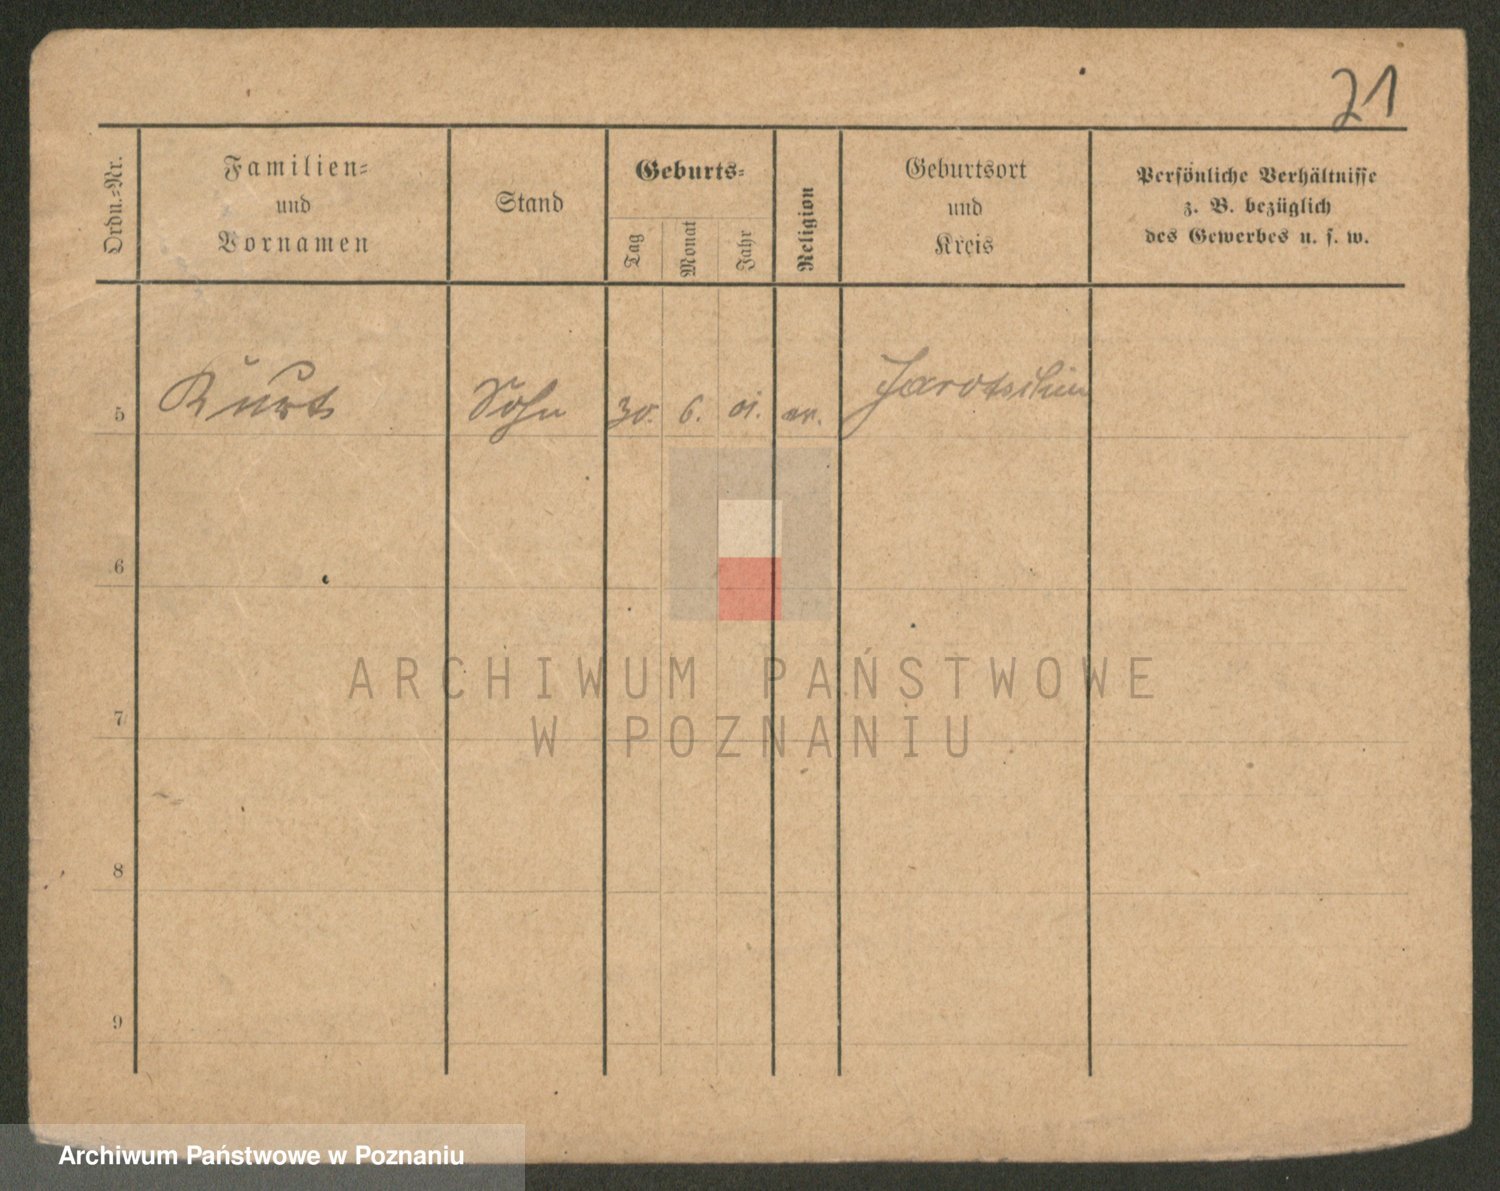 21
Ordn.-Nr.
Familien-
und
Vornamen
Stand
Geburts-
Tag
Monat
Jahr
Religion
Geburtsort
und
Kreis
Persönliche Verhältnisse
z. B. bezüglich
des Gewerbes u. s. w.
5 Kurt Sohn 30. 6. 01. ev. Jarotschin
6
7
8
9
ARCHIWUM PAŃSTWOWE
W POZNANIU
Archiwum Państwowe w Poznaniu